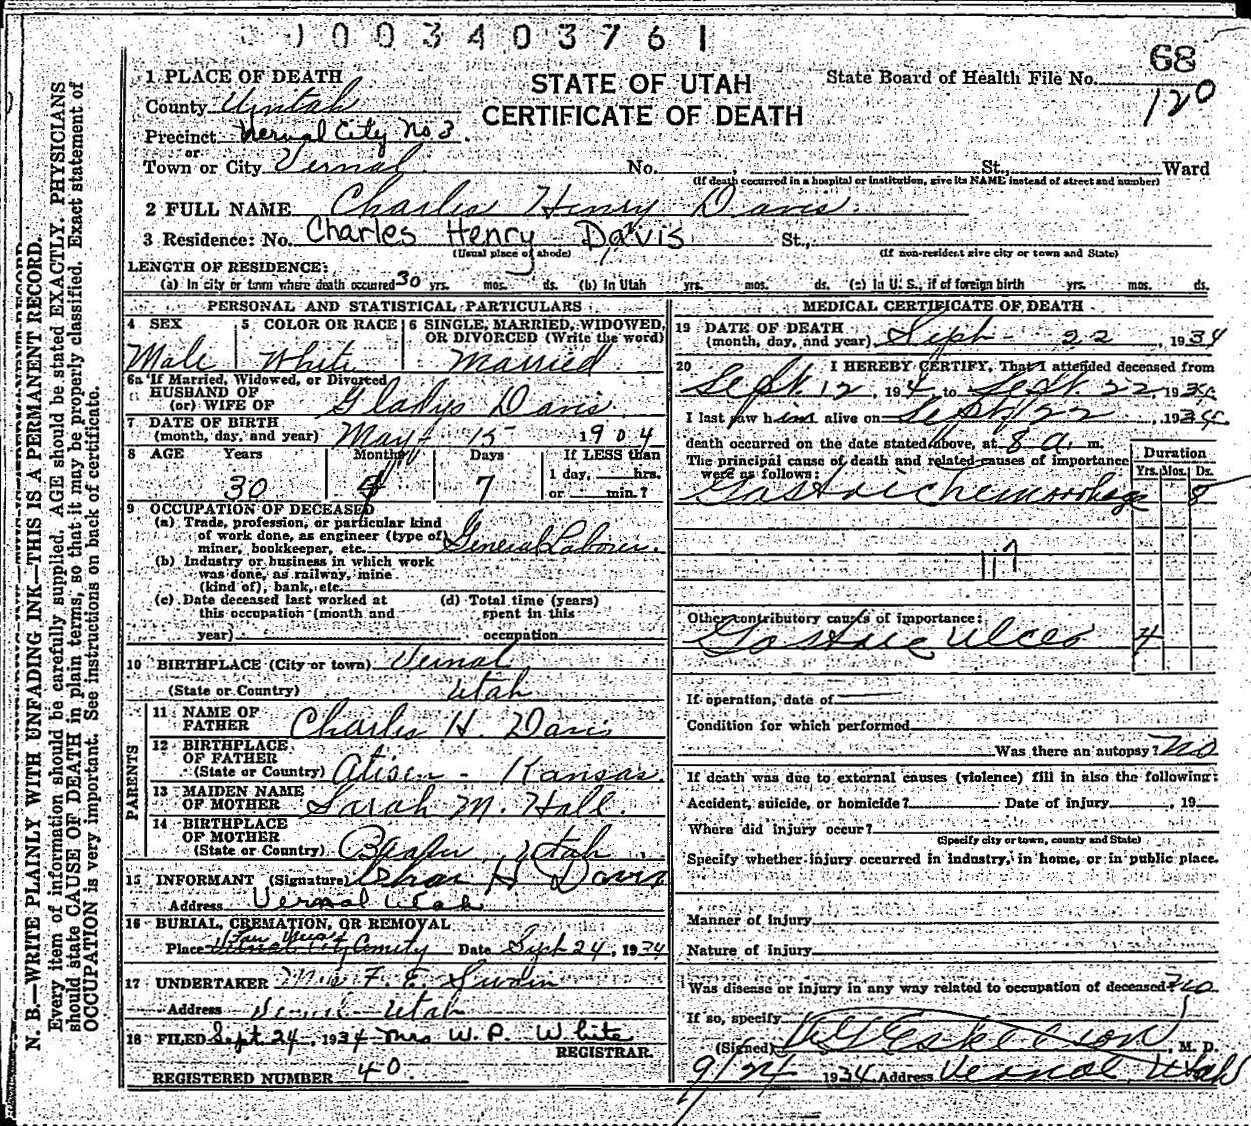 1003403761
68
120
STATE OF UTAH
CERTIFICATE OF DEATH
State Board of Health File No.
1 PLACE OF DEATH
County Uintah
Precinct Vernal City No 3.
or
Town or City Vernal No. St., Ward
(If death occurred in a hospital or institution, give its NAME instead of street and number)
2 FULL NAME Charles Henry Davis
3 Residence: No. Charles Henry Davis St.,
(Usual place of abode) (If non-resident give city or town and State)
LENGTH OF RESIDENCE:
(a) In city or town where death occurred 30 yrs. mos. ds. (b) In Utah yrs. mos. ds. (c) In U. S., if of foreign birth yrs. mos. ds.
PERSONAL AND STATISTICAL PARTICULARS
4 SEX
Male
5 COLOR OR RACE
White
6 SINGLE, MARRIED, WIDOWED, OR DIVORCED (Write the word)
Married
6a If Married, Widowed, or Divorced
HUSBAND OF
(or) WIFE OF Gladys Davis
7 DATE OF BIRTH
(month, day, and year) May - 15 1904
8 AGE Years Months Days If LESS than
1 day, hrs.
30 4 7 or min.?
9 OCCUPATION OF DECEASED
(a) Trade, profession, or particular kind
of work done, as engineer (type of)
miner, bookkeeper, etc. General Laborer.
(b) Industry or business in which work
was done, as railway, mine
(kind of), bank, etc.
(c) Date deceased last worked at
this occupation (month and
year)
(d) Total time (years)
spent in this
occupation
10 BIRTHPLACE (City or town) Vernal
(State or Country) Utah
PARENTS
11 NAME OF
FATHER Charles H. Davis
12 BIRTHPLACE
OF FATHER
(State or Country) Kansas.
13 MAIDEN NAME
OF MOTHER Sarah M. Hall.
14 BIRTHPLACE
OF MOTHER
(State or Country) Utah
15 INFORMANT (Signature) Chas H Davis
Address Vernal Utah
16 BURIAL, CREMATION, OR REMOVAL
Place Date Sept 24, 1934
17 UNDERTAKER F. E. Swain
Address Vernal Utah
18 FILED Sept 24, 1934 Mrs W. P. White
REGISTRAR.
REGISTERED NUMBER 40.
MEDICAL CERTIFICATE OF DEATH
19 DATE OF DEATH
(month, day, and year) Sept - 22, 1934
20 I HEREBY CERTIFY, That I attended deceased from
Sept. 12, 1934, to Sept 22, 1934.
I last saw him alive on Sept 22, 1934
death occurred on the date stated above, at 8 a. m.
The principal cause of death and related causes of importance
were as follows:
Duration
Yrs. Mos. Ds.
Gastric hemorrhage 8
117
Other contributory causes of importance:
Gastric ulcer 4
If operation, date of
Condition for which performed
Was there an autopsy? No
If death was due to external causes (violence) fill in also the following:
Accident, suicide, or homicide? Date of injury , 19
Where did injury occur?
(Specify city or town, county and State)
Specify whether injury occurred in industry, in home, or in public place.
Manner of injury
Nature of injury
Was disease or injury in any way related to occupation of deceased? no
If so, specify
(Signed) , M. D.
9/24 1934 Address Vernal, Utah
N. B.—WRITE PLAINLY WITH UNFADING INK—THIS IS A PERMANENT RECORD.
Every item of information should be carefully supplied. AGE should be stated EXACTLY. PHYSICIANS
should state CAUSE OF DEATH in plain terms, so that it may be properly classified. Exact statement of
OCCUPATION is very important. See instructions on back of certificate.